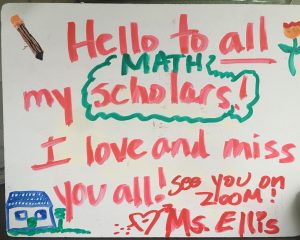 Hello to all
MATH
my scholars!
I love and miss
you all! SEE YOU ON
ZOOM!
Ms. Ellis